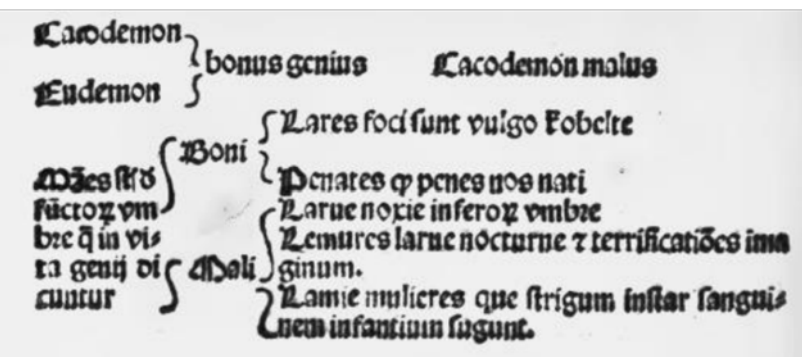 Cacodemon
Eudemon
bonus genius
Cacodemon malus
Manes sũt d
fũctoꝝ vm
bre q̃ in vi⸗
ta genij di
cuntur
Boni
Lares foci sunt vulgo kobelte
Penates ꝙ penes nos nati
Mali
Larue noxie inferoꝝ vmbre
Lemures larue nocturne ⁊ terrificatiões ima
ginum.
Lamie mulieres que strigum instar sangui⸗
nem infantium sugunt.